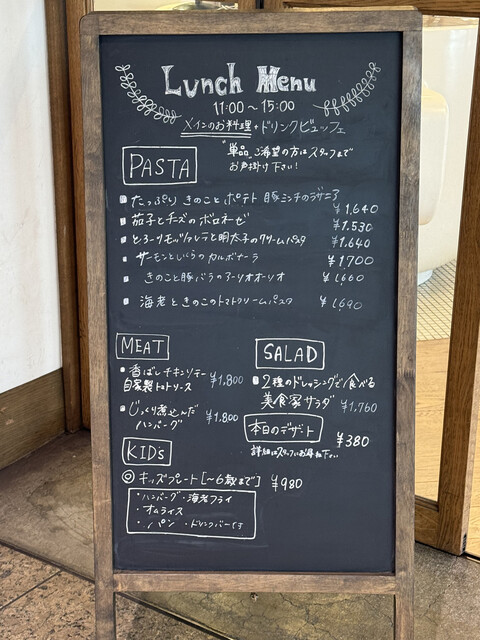 Lunch Menu
11:00 〜 15:00
メインのお料理 + ドリンクビュッフェ
"単品"ご希望の方はスタッフまで
お声掛け下さい!
PASTA
たっぷり きのこと ポテト 豚ミンチのラザニア ¥1,640
茄子とチーズの ボロネーゼ ¥1,530
とろーりモッツァレラと明太子のクリームパスタ ¥1,640
サーモンといくらの カルボナーラ ¥1,700
きのこと豚バラのアーリオオーリオ ¥1,660
海老ときのこのトマトクリームパスタ ¥1,690
MEAT
香ばしチキンソテー
自家製トマトソース ¥1,800
じっくり煮込んだ
ハンバーグ ¥1,800
SALAD
2種のドレッシングで食べる
美食家サラダ ¥1,760
本日のデザート ¥380
詳細はスタッフにお尋ね下さい
KIDs
◎ キッズプレート [〜6歳まで] ¥980
・ハンバーグ・海老フライ
・オムライス
・パン ・ドリンクバー付